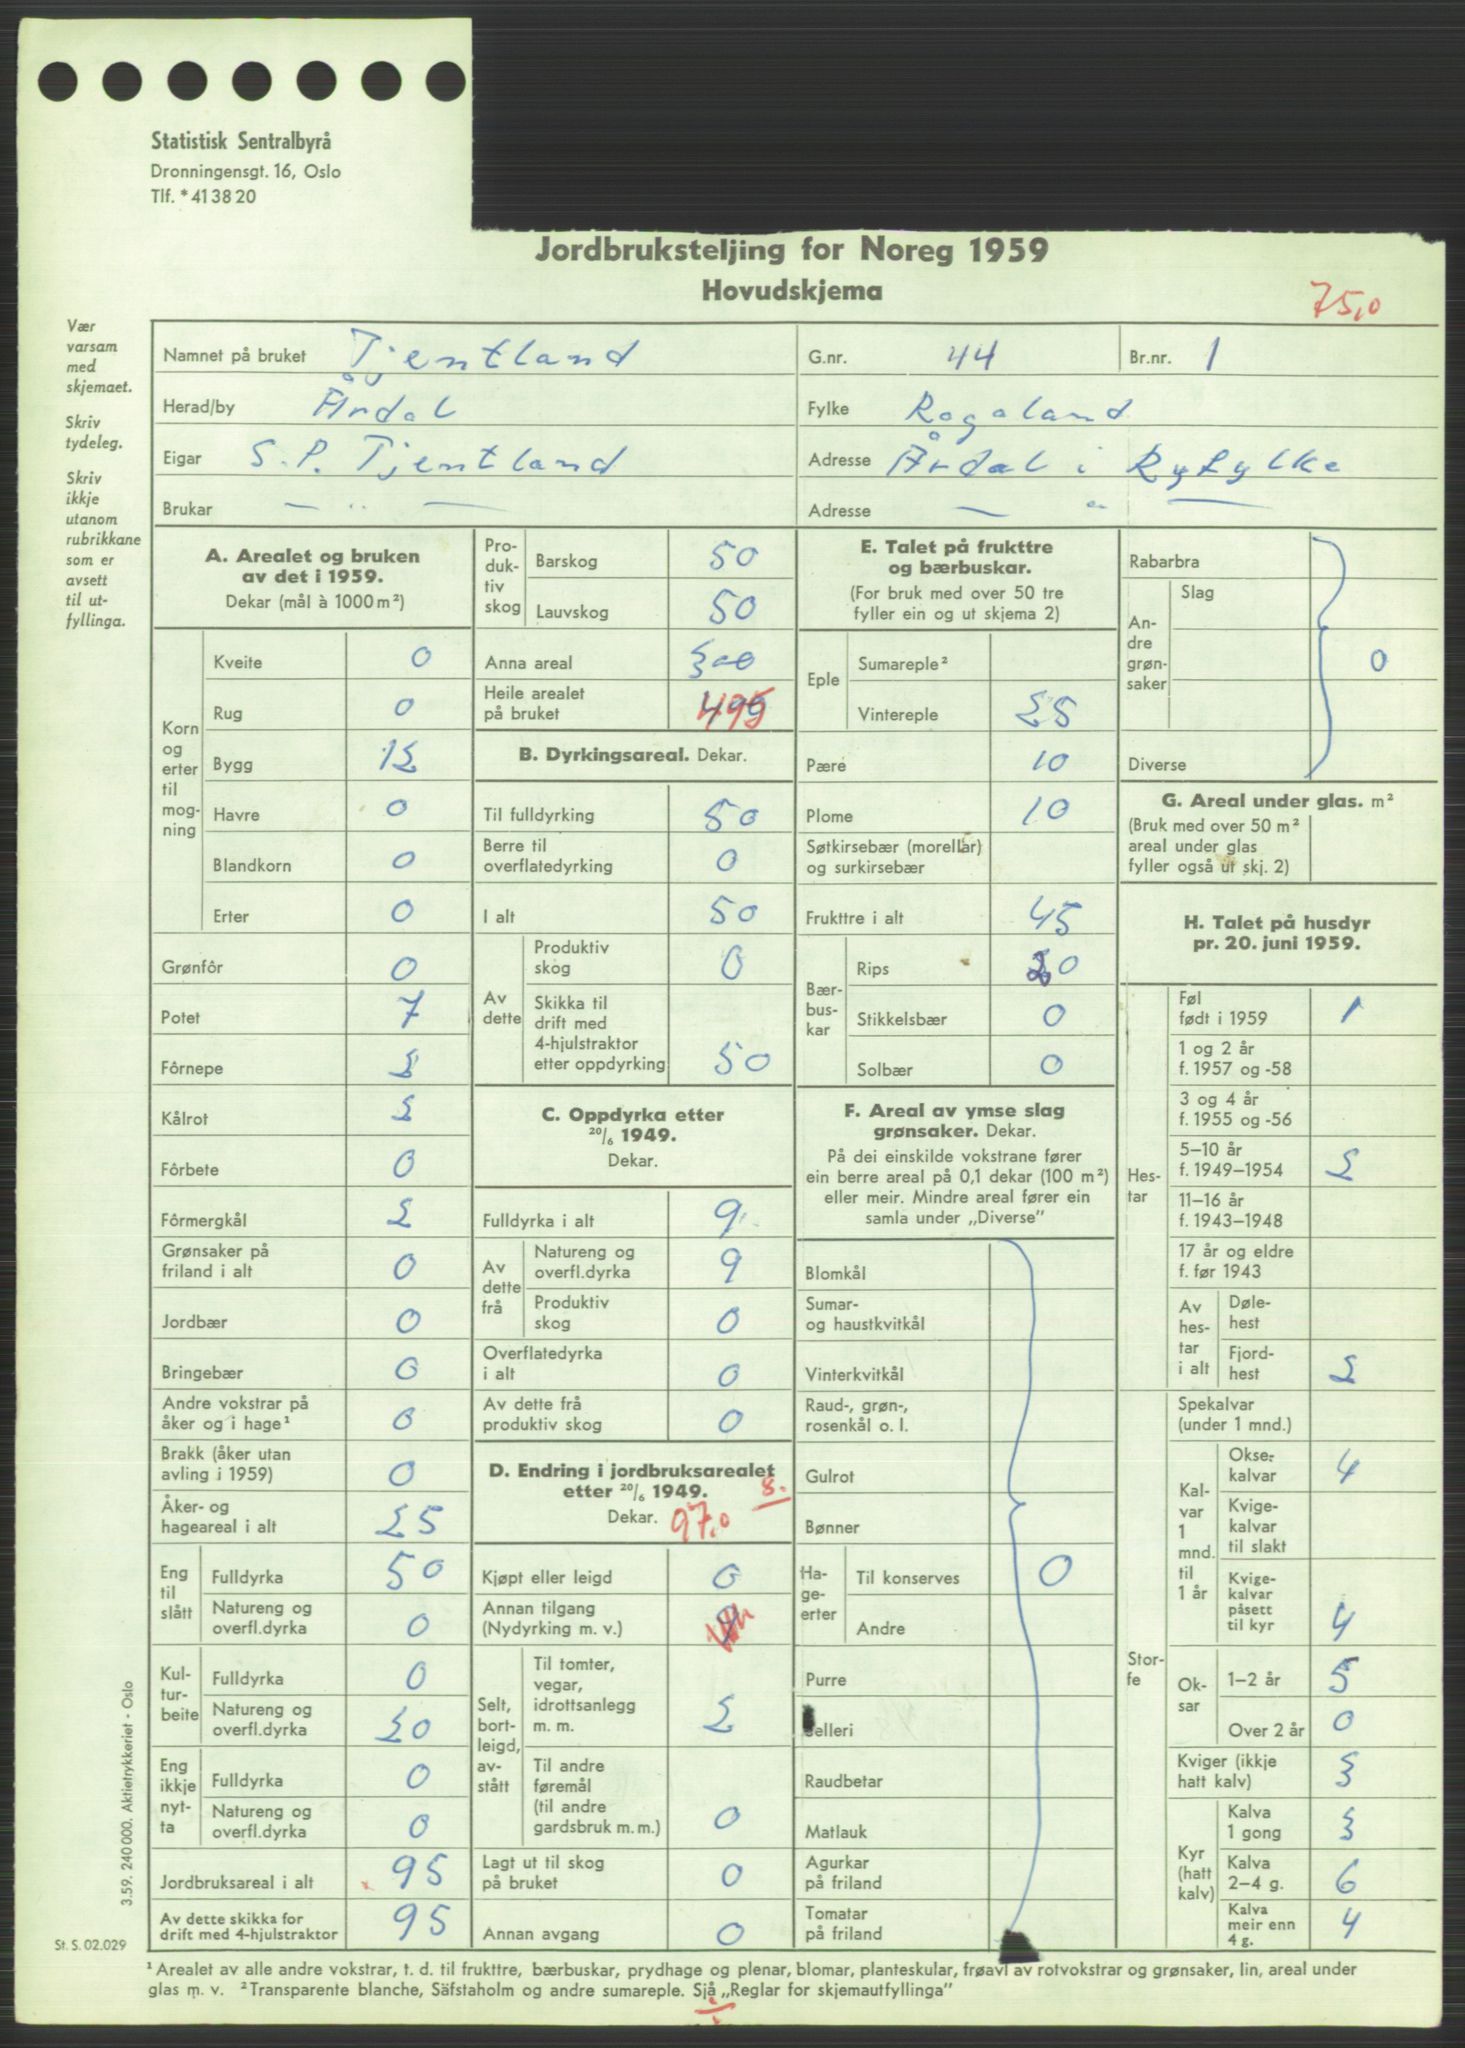 Statistisk Sentralbyrå
Dronningensgt. 16, Oslo
Tlf. * 41 38 20
Jordbruksteljing for Noreg 1959
Hovudskjema
75,0
Vær
varsam
med
skjemaet.
Skriv
tydeleg.
Skriv
ikkje
utanom
rubrikkane
som er
avsett
til ut-
fyllinga.
Namnet på bruket Tjentland G.nr. 44 Br.nr. 1
Herad/by Årdal Fylke Rogaland
Eigar S.P. Tjentland Adresse Årdal i Ryfylke
Brukar — „ — Adresse — „ —
A. Arealet og bruken
av det i 1959.
Dekar (mål à 1000 m²)
Korn
og
erter
til
mog-
ning
Kveite 0
Rug 0
Bygg 12
Havre 0
Blandkorn 0
Erter 0
Grønfôr 0
Potet 7
Fôrnepe 2
Kålrot 2
Fôrbete 0
Fôrmergkål 2
Grønsaker på
friland i alt 0
Jordbær 0
Bringebær 0
Andre vokstrar på
åker og i hage¹ 0
Brakk (åker utan
avling i 1959) 0
Åker- og
hageareal i alt 25
Eng
til
slått
Fulldyrka 50
Natureng og
overfl.dyrka 0
Kul-
tur-
beite
Fulldyrka 0
Natureng og
overfl.dyrka 20
Eng
ikkje
nyt-
ta
Fulldyrka 0
Natureng og
overfl.dyrka 0
Jordbruksareal i alt 95
Av dette skikka for
drift med 4-hjulstraktor 95
Pro-
duk-
tiv
skog
Barskog 50
Lauvskog 50
Anna areal 300
Heile arealet
på bruket 495
B. Dyrkingsareal. Dekar.
Til fulldyrking 50
Berre til
overflatedyrking 0
I alt 50
Av
dette
Produktiv
skog 0
Skikka til
drift med
4-hjulstraktor
etter oppdyrking 50
C. Oppdyrka etter
20/6 1949.
Dekar.
Fulldyrka i alt 9
Av
dette
frå
Natureng og
overfl.dyrka 9
Produktiv
skog 0
Overflatedyrka
i alt 0
Av dette frå
produktiv skog 0
D. Endring i jordbruksarealet
etter 20/6 1949. 8.
Dekar. 97,0
Kjøpt eller leigd 0
Annan tilgang
(Nydyrking m. v.) 9
Selt,
bort-
leigd,
av-
stått
Til tomter,
vegar,
idrottsanlegg
m. m. 2
Til andre
føremål
(til andre
gardsbruk m. m.) 0
Lagt ut til skog
på bruket 0
Annan avgang 0
E. Talet på frukttre
og bærbuskar.
(For bruk med over 50 tre
fyller ein og ut skjema 2)
Eple
Sumareple²
Vintereple 25
Pære 10
Plome 10
Søtkirsebær (morellar)
og surkirsebær
Frukttre i alt 45
Bær-
bus-
kar
Rips 20
Stikkelsbær 0
Solbær 0
F. Areal av ymse slag
grønsaker. Dekar.
På dei einskilde vokstrane fører
ein berre areal på 0,1 dekar (100 m²)
eller meir. Mindre areal fører ein
samla under „Diverse”
Blomkål
Sumar-
og haustkvitkål
Vinterkvitkål
Raud-, grøn-,
rosenkål o. l.
Gulrot
Bønner
Ha-
ge-
erter
Til konserves 0
Andre
Purre
Selleri
Raudbetar
Matlauk
Agurkar
på friland
Tomatar
på friland
Rabarbra
An-
dre
grøn-
saker
Slag
0
Diverse
G. Areal under glas. m²
(Bruk med over 50 m²
areal under glas
fyller også ut skj. 2)
H. Talet på husdyr
pr. 20. juni 1959.
Hes-
tar
Føl
født i 1959 1
1 og 2 år
f. 1957 og -58
3 og 4 år
f. 1955 og -56
5–10 år
f. 1949–1954 2
11–16 år
f. 1943–1948
17 år og eldre
f. før 1943
Av
hes-
tar
i alt
Døle-
hest
Fjord-
hest 2
Stor-
fe
Spekalvar
(under 1 mnd.)
Kal-
var
1
mnd.
til
1 år
Okse-
kalvar 4
Kvige-
kalvar
til slakt
Kvige-
kalvar
påsett
til kyr 4
Ok-
sar
1–2 år 5
Over 2 år 0
Kviger (ikkje
hatt kalv) 3
Kyr
(hatt
kalv)
Kalva
1 gong 3
Kalva
2–4 g. 6
Kalva
meir enn
4 g. 4
3.59. 240 000. Aktietrykkeriet - Oslo
St. S. 02.029
¹ Arealet av alle andre vokstrar, t. d. til frukttre, bærbuskar, prydhage og plenar, blomar, planteskular, frøavl av rotvokstrar og grønsaker, lin, areal under
glas m. v. ² Transparente blanche, Säfstaholm og andre sumareple. Sjå „Reglar for skjemautfyllinga”